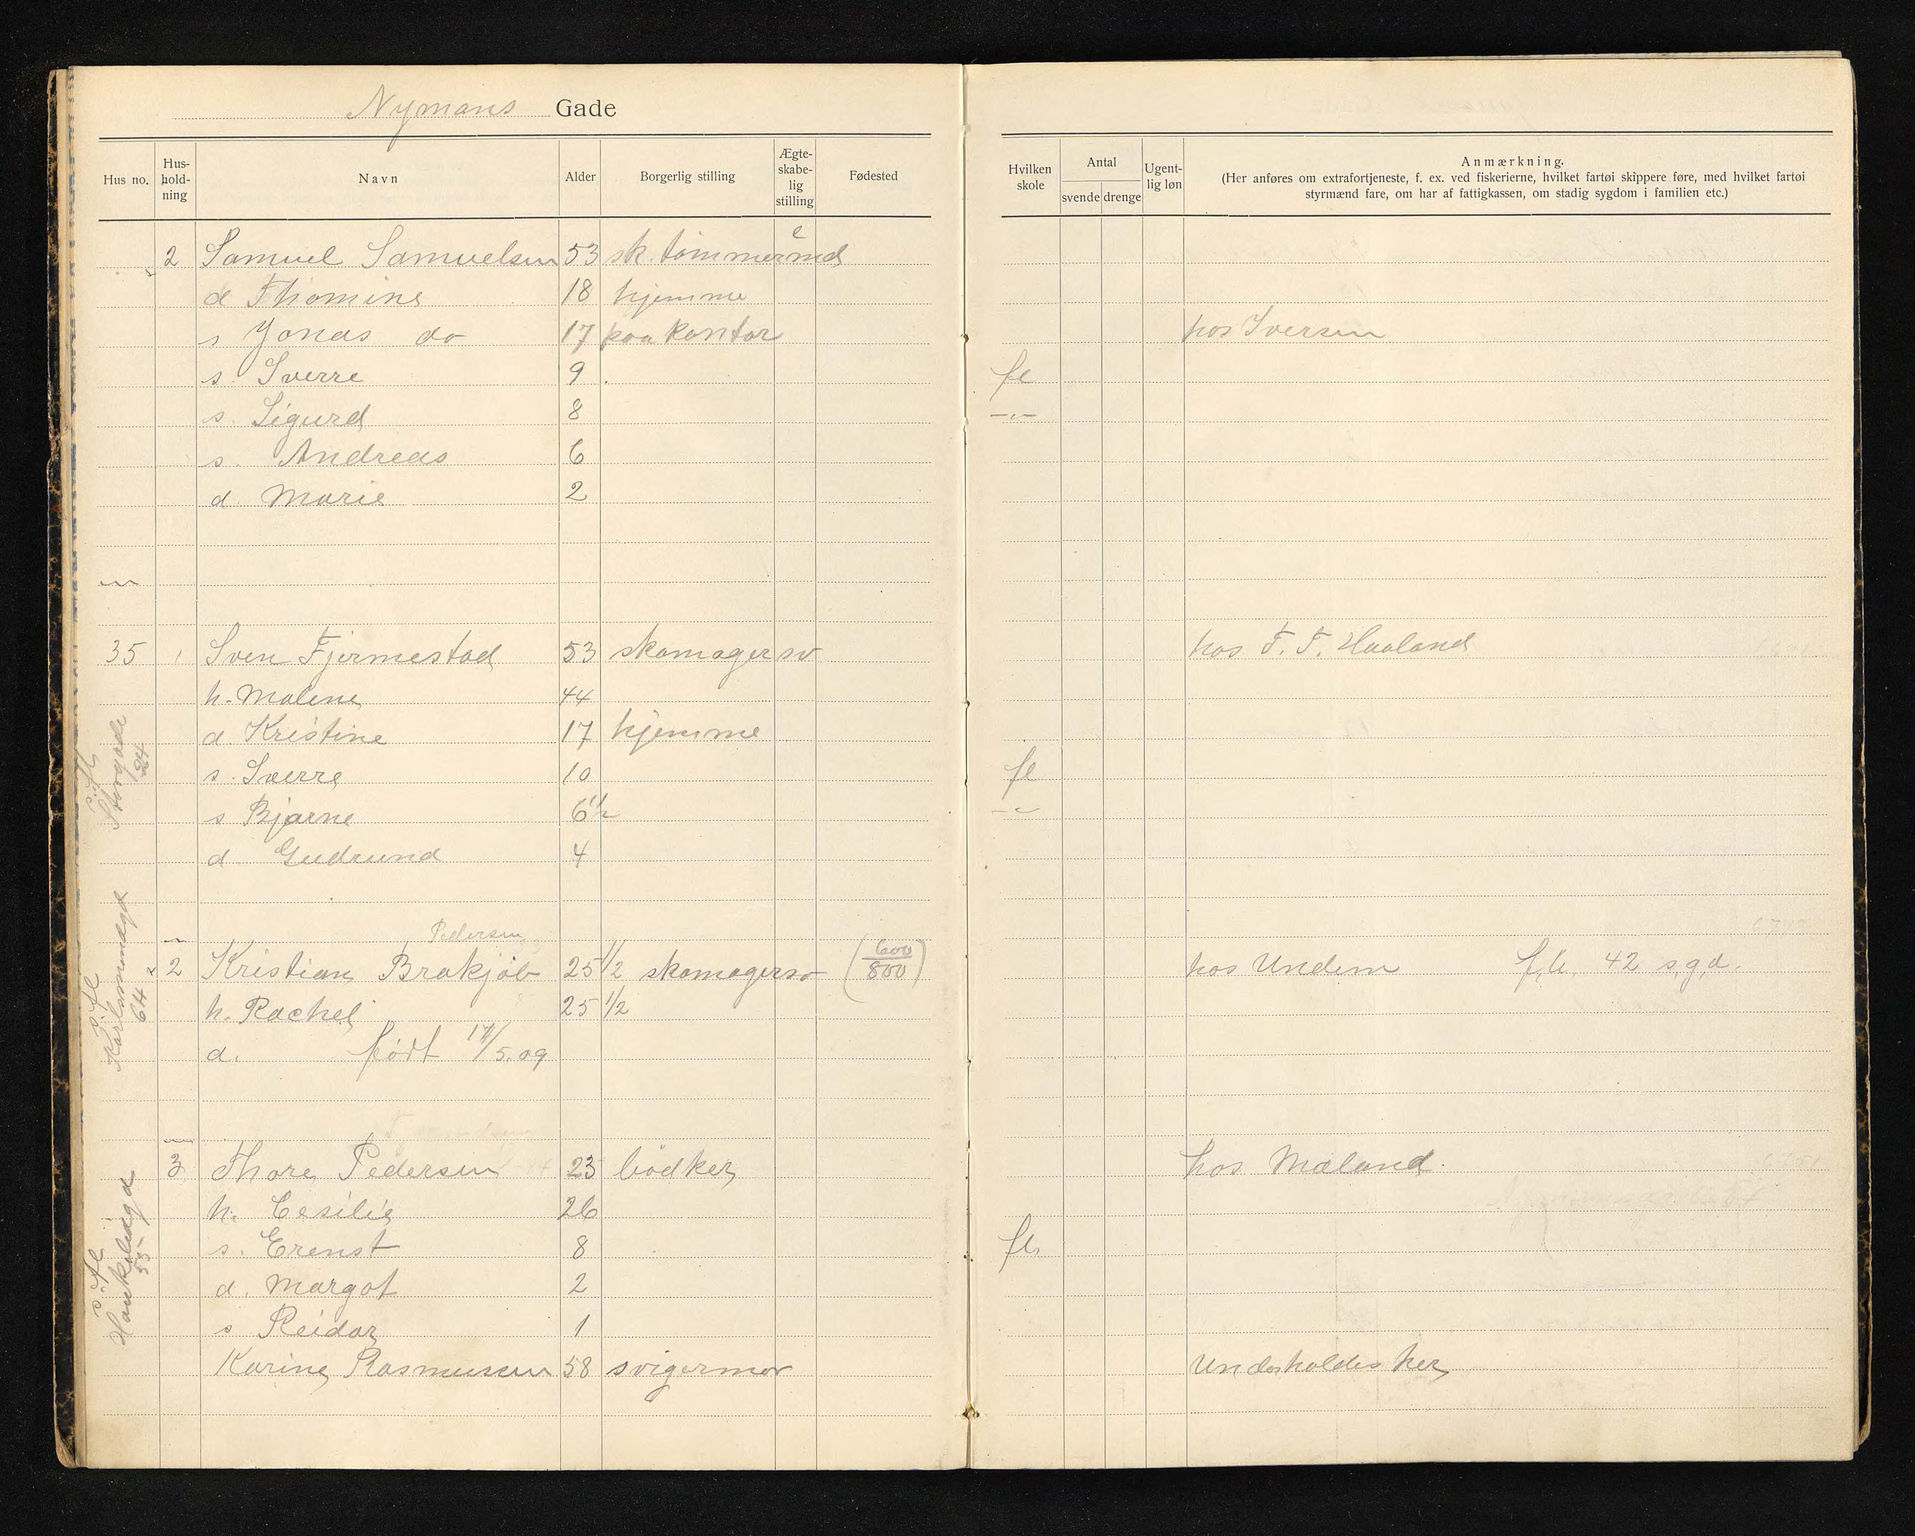 Nymans Gade
Hus no. Hus-hold-ning Navn Alder Borgerlig stilling Ægte-skabe-lig stilling Fødested
Hvilken skole Antal svende drenge Ugent-lig løn Anmærkning.
(Her anføres om extrafortjeneste, f. ex. ved fiskerierne, hvilket fartøi skippere føre, med hvilket fartøi
styrmænd fare, om har af fattigkassen, om stadig sygdom i familien etc.)
2 Samuel Samuelsen 53 sk. tømmermd e
d Thomine 18 hjemme
s Jonas do 17 paa kontor hos Iversen
s. Sverre 9 fl
s. Sigurd 8 -"-
s. Andreas 6
d. Marie 2
35 1 Sven Fjermestad 53 skomagersv hos F. F. Haaland
h. Malene 44
d. Kristine 17 hjemme
s. Sverre 10 fl
s Bjarne 6 1/2 -"-
d. Gudrund 4
fl Storgade 24
Pedersen
2 Kristian Brakjøb 25 1/2 skomagersv (600/800) hos Undem f,h, 42 s,g,d.
h. Rachel 25 1/2
d. født 17/5.09
fl 64
3 Thore Pedersen 23 bødker hos Maland.
h. Cesilie 26
s. Erenst 8 fl
d. Margot 2
s Reidar 1
Karine Rasmussen 58 svigermor Underholdes her
fl 55